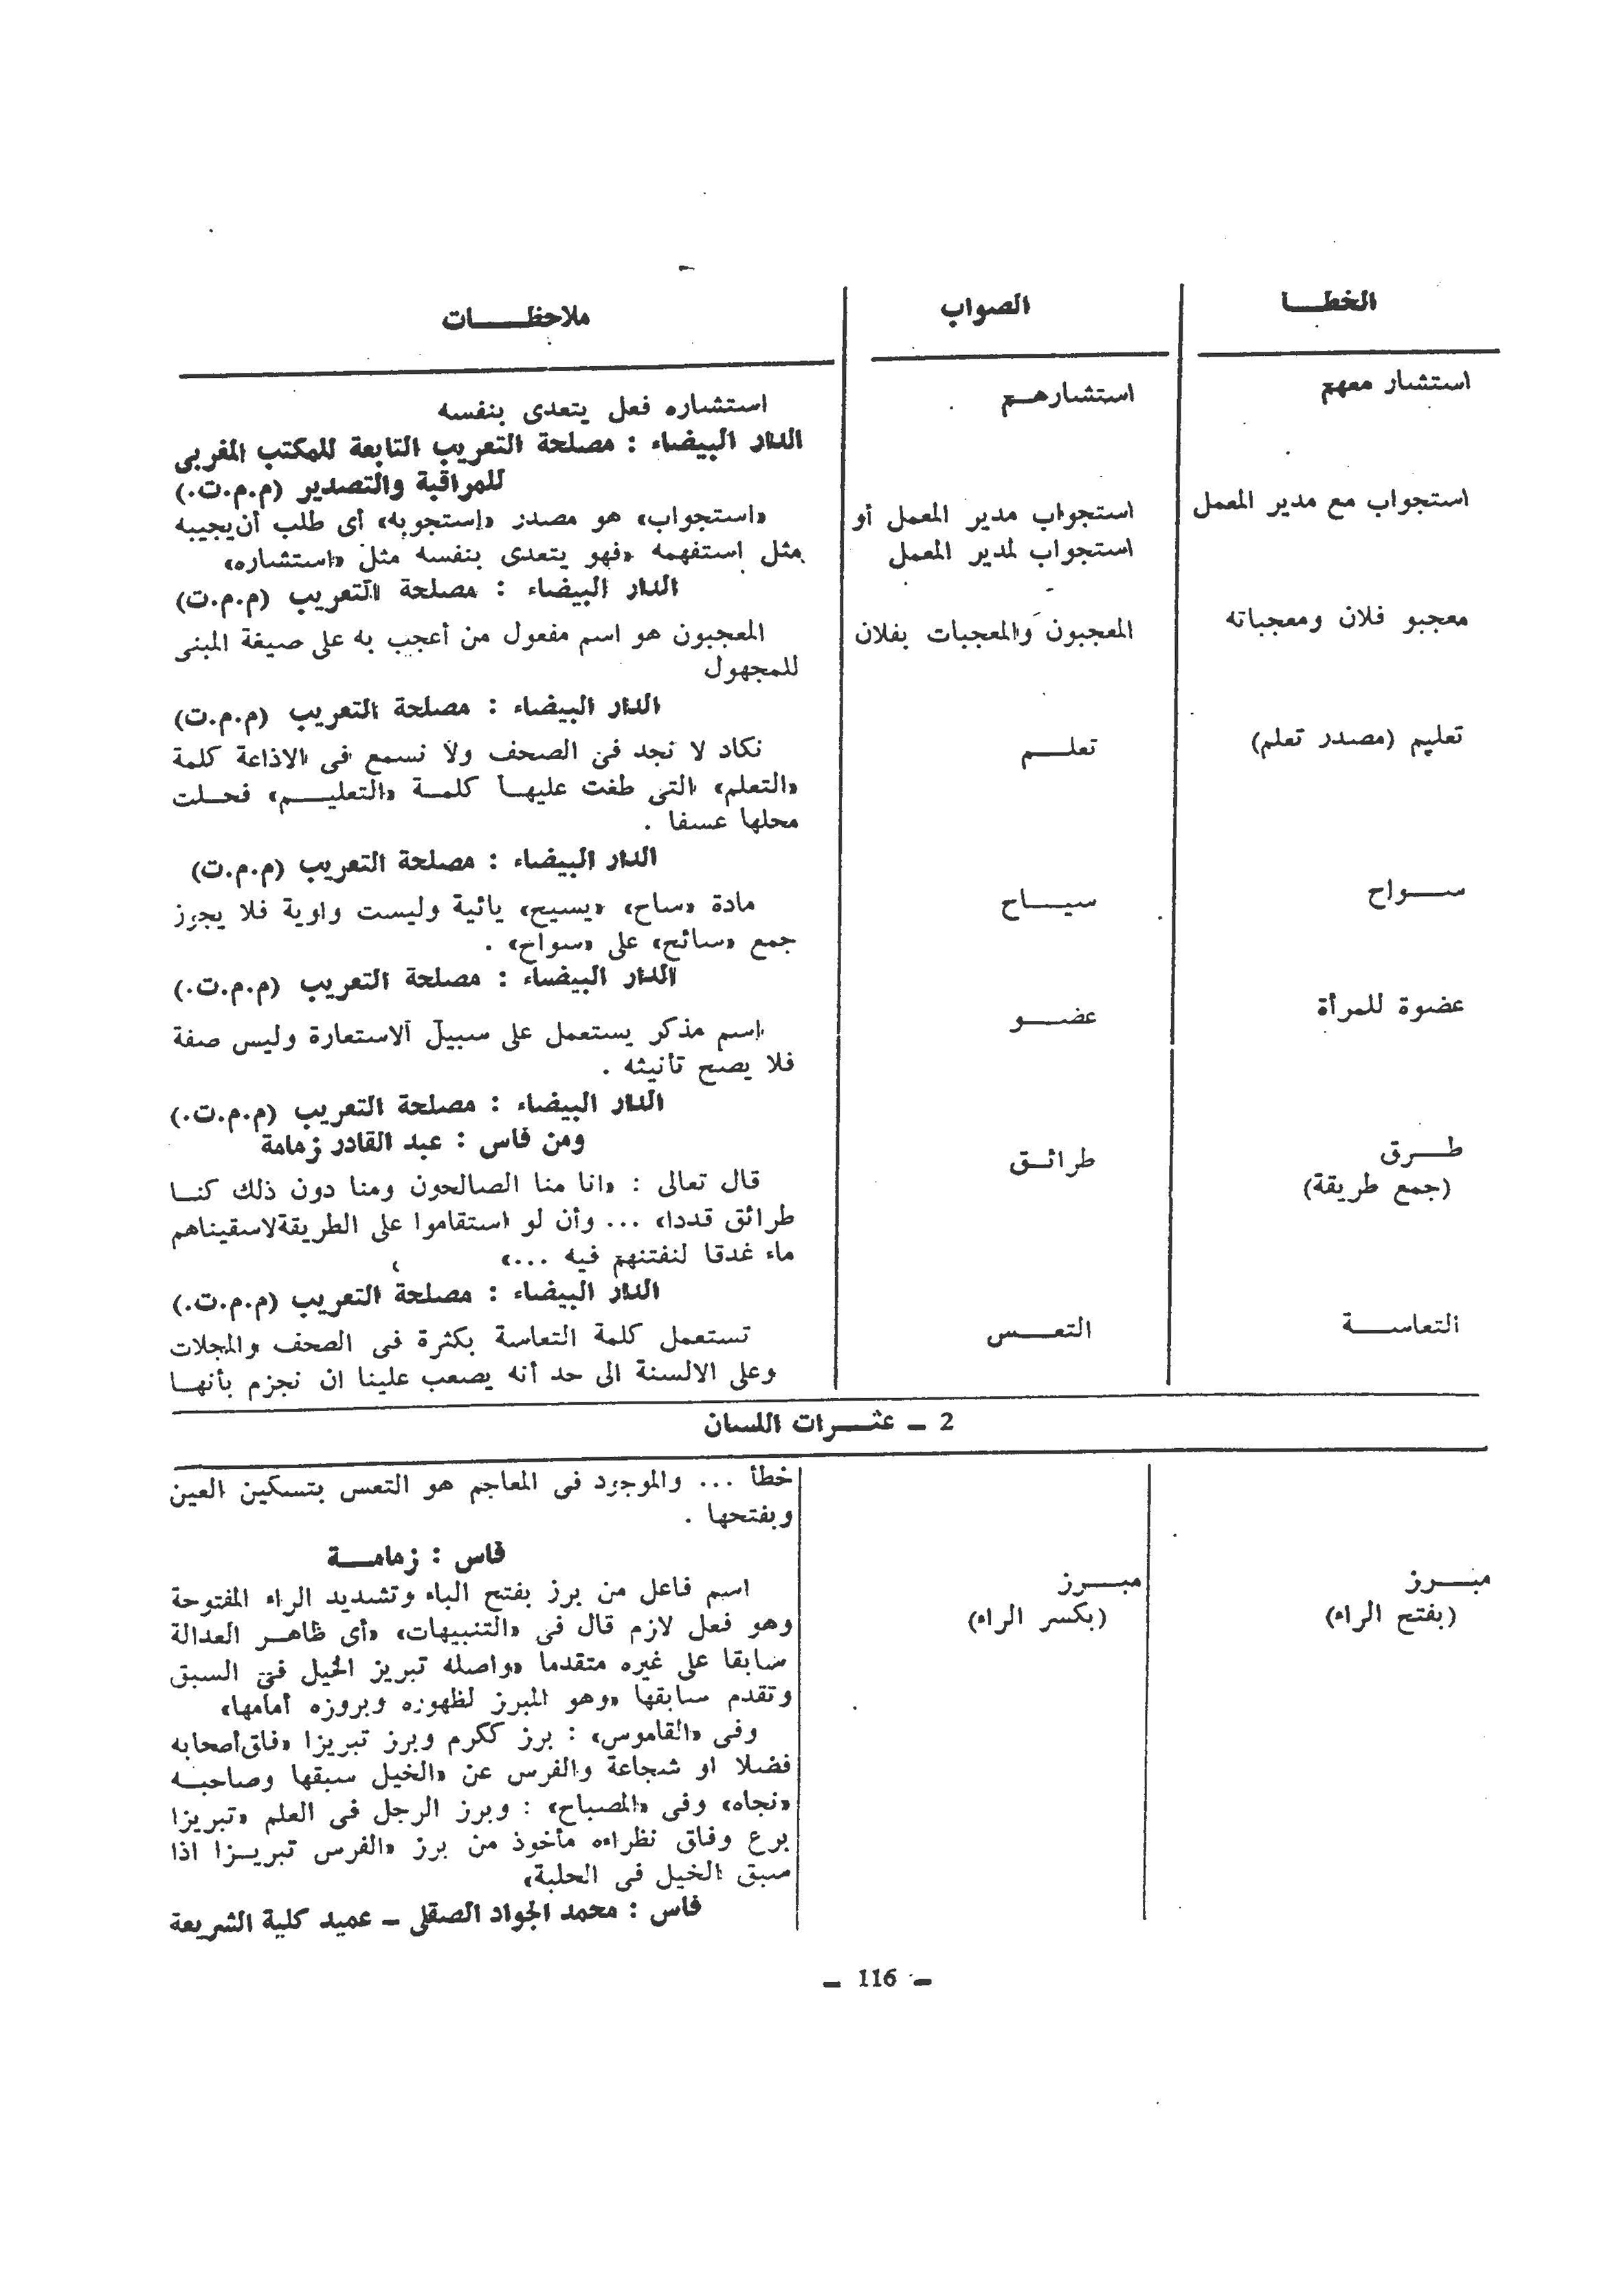 الخطـــا
الصواب
ملاحظـــــات
استشار معهم
استشارهـم
استشاره فعل يتعدى بنفسه
الدار البيضاء : مصلحة التعريب التابعة للمكتب المغربى
للمراقبة والتصدير (م.م.ت.)
استجواب مع مدير المعمل
استجواب مدير المعمل أو
استجواب لمدير المعمل
«استجواب» هو مصدر «إستجوبه» أى طلب أن يجيبه
مثل استفهمه «فهو يتعدى بنفسه مثل «استشاره»
الدار البيضاء : مصلحة التعريب (م.م.ت)
معجبو فلان ومعجباته
المعجبون والمعجبات بفلان
المعجبون هو اسم مفعول من أعجب به على صيغة المبنى
للمجهول
الدار البيضاء : مصلحة التعريب (م.م.ت)
تعليم (مصدر تعلم)
تعلـــم
نكاد لا نجد فى الصحف ولا نسمع فى الاذاعة كلمة
«التعلم» التى طغت عليهـا كلمـة «التعليـــم» فحلـت
محلها عسفا .
الدار البيضاء : مصلحة التعريب (م.م.ت)
ســـواح
سيـــاح
مادة «ساح» «يسيح» يائية وليست واوية فلا يجوز
جمع «سائح» على «سواح» .
الدار البيضاء : مصلحة التعريب (م.م.ت.)
عضوة للمرأة
عضـــو
اسم مذكر يستعمل على سبيل الاستعارة وليس صفة
فلا يصح تأنيثه .
الدار البيضاء : مصلحة التعريب (م.م.ت.)
ومن فاس : عبد القادر زمامة
طـــرق
(جمع طريقة)
طرائـق
قال تعالى : «انا منا الصالحون ومنا دون ذلك كنـا
طرائق قددا» ... وأن لو استقاموا على الطريقة لاسقيناهم
ماء غدقا لنفتنهم فيه ...»
الدار البيضاء : مصلحة التعريب (م.م.ت.)
التعاســـة
التعـــس
تستعمل كلمة التعاسة بكثرة فى الصحف والمجلات
وعلى الالسنة الى حد أنه يصعب علينا ان نجزم بأنهـا
2 ــ عثـــرات اللسان
خطأ ... والموجود فى المعاجم هو التعس بتسكين العين
وبفتحها .
فاس : زمامـــة
مبـــرز
(بفتح الراء)
مبـــرز
(بكسر الراء)
اسم فاعل من برز بفتح الباء وتشديد الراء المفتوحة
وهو فعل لازم قال فى «التنبيهات» «أى ظاهـر العدالة
سابقا على غيره متقدما «واصله تبريز الخيل فى السبق
وتقدم سابقها «وهو المبرز لظهوره وبروزه أمامها»
وفى «القاموس» : برز ككرم وبرز تبريزا «فاق أصحابه
فضلا او شجاعة والفرس عن «الخيل سبقها وصاحبـه
«نجاه» وفى «المصباح» : وبرز الرجل فى العلم «تبريزا
برع وفاق نظراءه مأخوذ من برز «الفرس تبريـزا اذا
سبق الخيل فى الحلبة»
فاس : محمد الجواد الصقلى ــ عميد كلية الشريعة
ــ 116 ــ